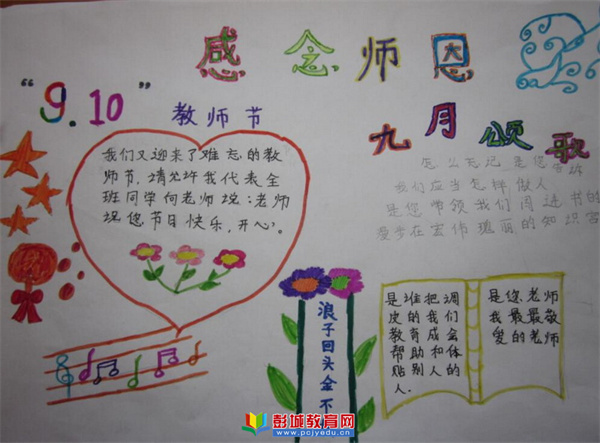 感念师恩
“9.10”
教师节
九月颂歌
我们又迎来了难忘的教
师节,请允许我代表全
班同学向老师说:老师
祝您节日快乐,开心。
我们应当怎样做人
是您带领我们闯进书的
爱步在宏伟瑰丽的知识宫
浪子回头金不
是谁把调
皮的我们
教育成会
帮助和体
贴别人的
人.
是您老师
我最最敬
爱的老师
彭城教育网
www.pcjyedu.cn